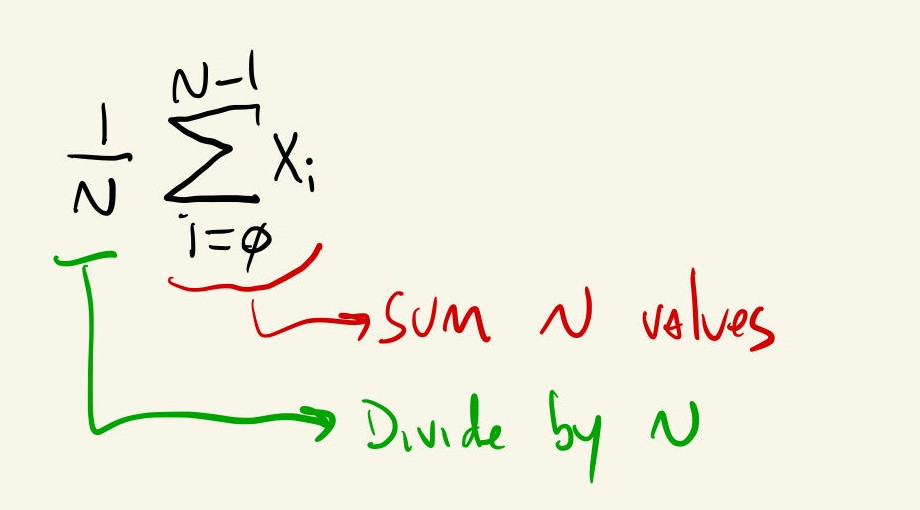 1/N ∑_{i=ϕ}^{N-1} x_i
SUM N values
Divide by N